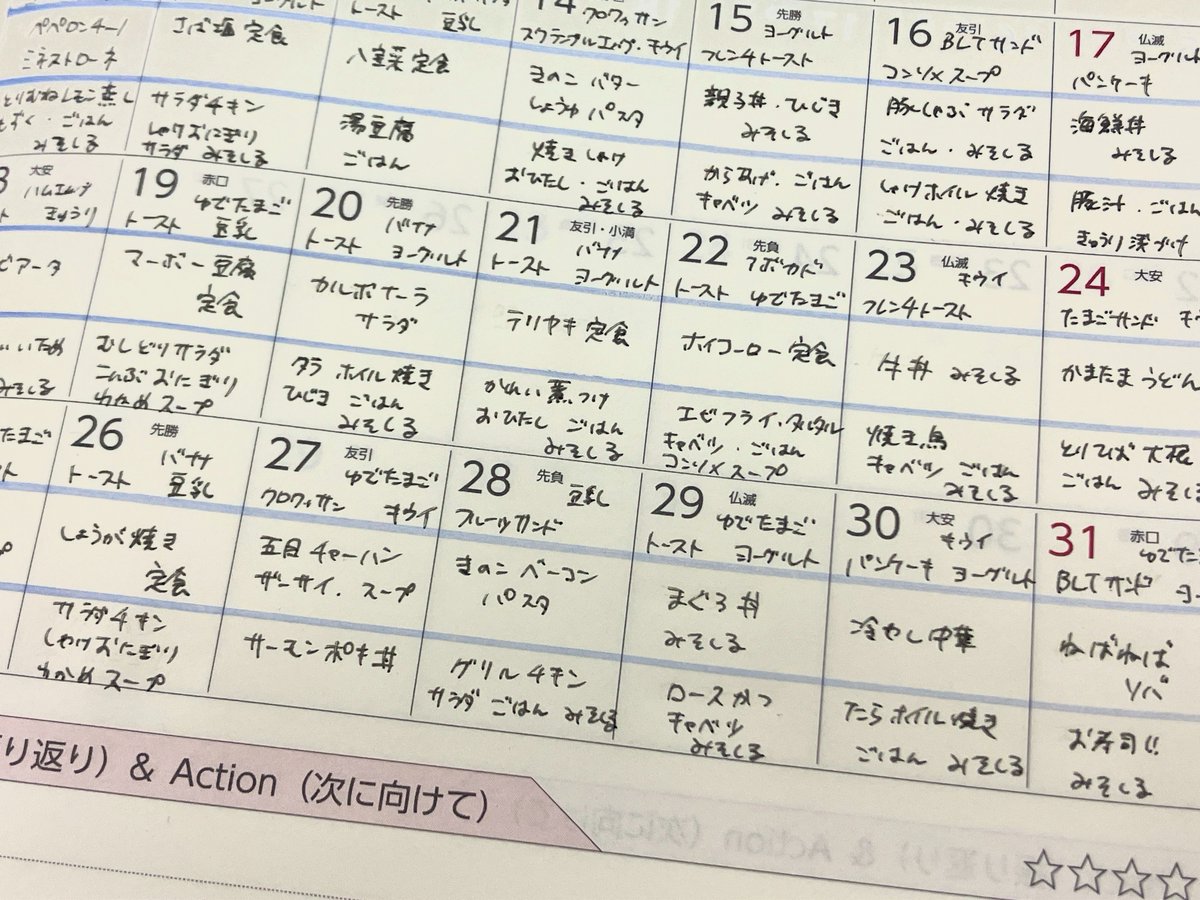 ペペロンチーノ
ミネストローネ
とりむねレモン蒸し
もずく・ごはん
みそしる
トースト
さば塩定食
サラダチキン
しゃけおにぎり
サラダ みそしる
トースト 豆乳
八宝菜定食
湯豆腐
ごはん
14 クロワッサン
スクランブルエッグ・キウイ
きのこ バター
しょうゆ パスタ
焼きしゃけ
おひたし・ごはん
みそしる
15 先勝 ヨーグルト
フレンチトースト
親子丼・ひじき
みそしる
からあげ・ごはん
キャベツ みそしる
16 友引 BLTサンド
コンソメスープ
豚しゃぶ サラダ
ごはん・みそしる
しゃけホイル焼き
ごはん・みそしる
17 仏滅
パンケーキ
海鮮丼
みそしる
豚汁・ごはん
きゅうり浅づけ
大安 ハムエッグ
きゅうり
いため
みそしる
19 赤口 ゆでたまご
トースト 豆乳
マーボー豆腐
定食
むしどりサラダ
こんぶおにぎり
わかめスープ
20 先勝 バナナ
トースト ヨーグルト
カルボナーラ
サラダ
タラ ホイル焼き
ひじき ごはん
みそしる
21 友引・小満 バナナ
トースト ヨーグルト
テリヤキ定食
かれい煮つけ
おひたし ごはん
みそしる
22 先負 アボカド
トースト ゆでたまご
ホイコーロー定食
エビフライ・タルタル
キャベツ・ごはん
コンソメスープ
23 仏滅 キウイ
フレンチトースト
牛丼 みそしる
焼き鳥
キャベツ ごはん
みそしる
24 大安
たまごサンド
かまたまうどん
ごはん
26 先勝 バナナ
トースト 豆乳
しょうが焼き
定食
サラダチキン
しゃけおにぎり
わかめスープ
27 友引 ゆでたまご
クロワッサン キウイ
五目チャーハン
ザーサイ・スープ
サーモンポキ丼
28 先負 豆乳
フルーツサンド
きのこ ベーコン
パスタ
グリルチキン
サラダ ごはん みそしる
29 仏滅 ゆでたまご
トースト ヨーグルト
まぐろ丼
みそしる
ロースかつ
キャベツ
みそしる
30 大安 キウイ
パンケーキ ヨーグルト
冷やし中華
たらホイル焼き
ごはん みそしる
31 赤口
BLTサンド
ねばねば
ソバ
お寿司!!
みそしる
り返り）& Action（次に向けて）